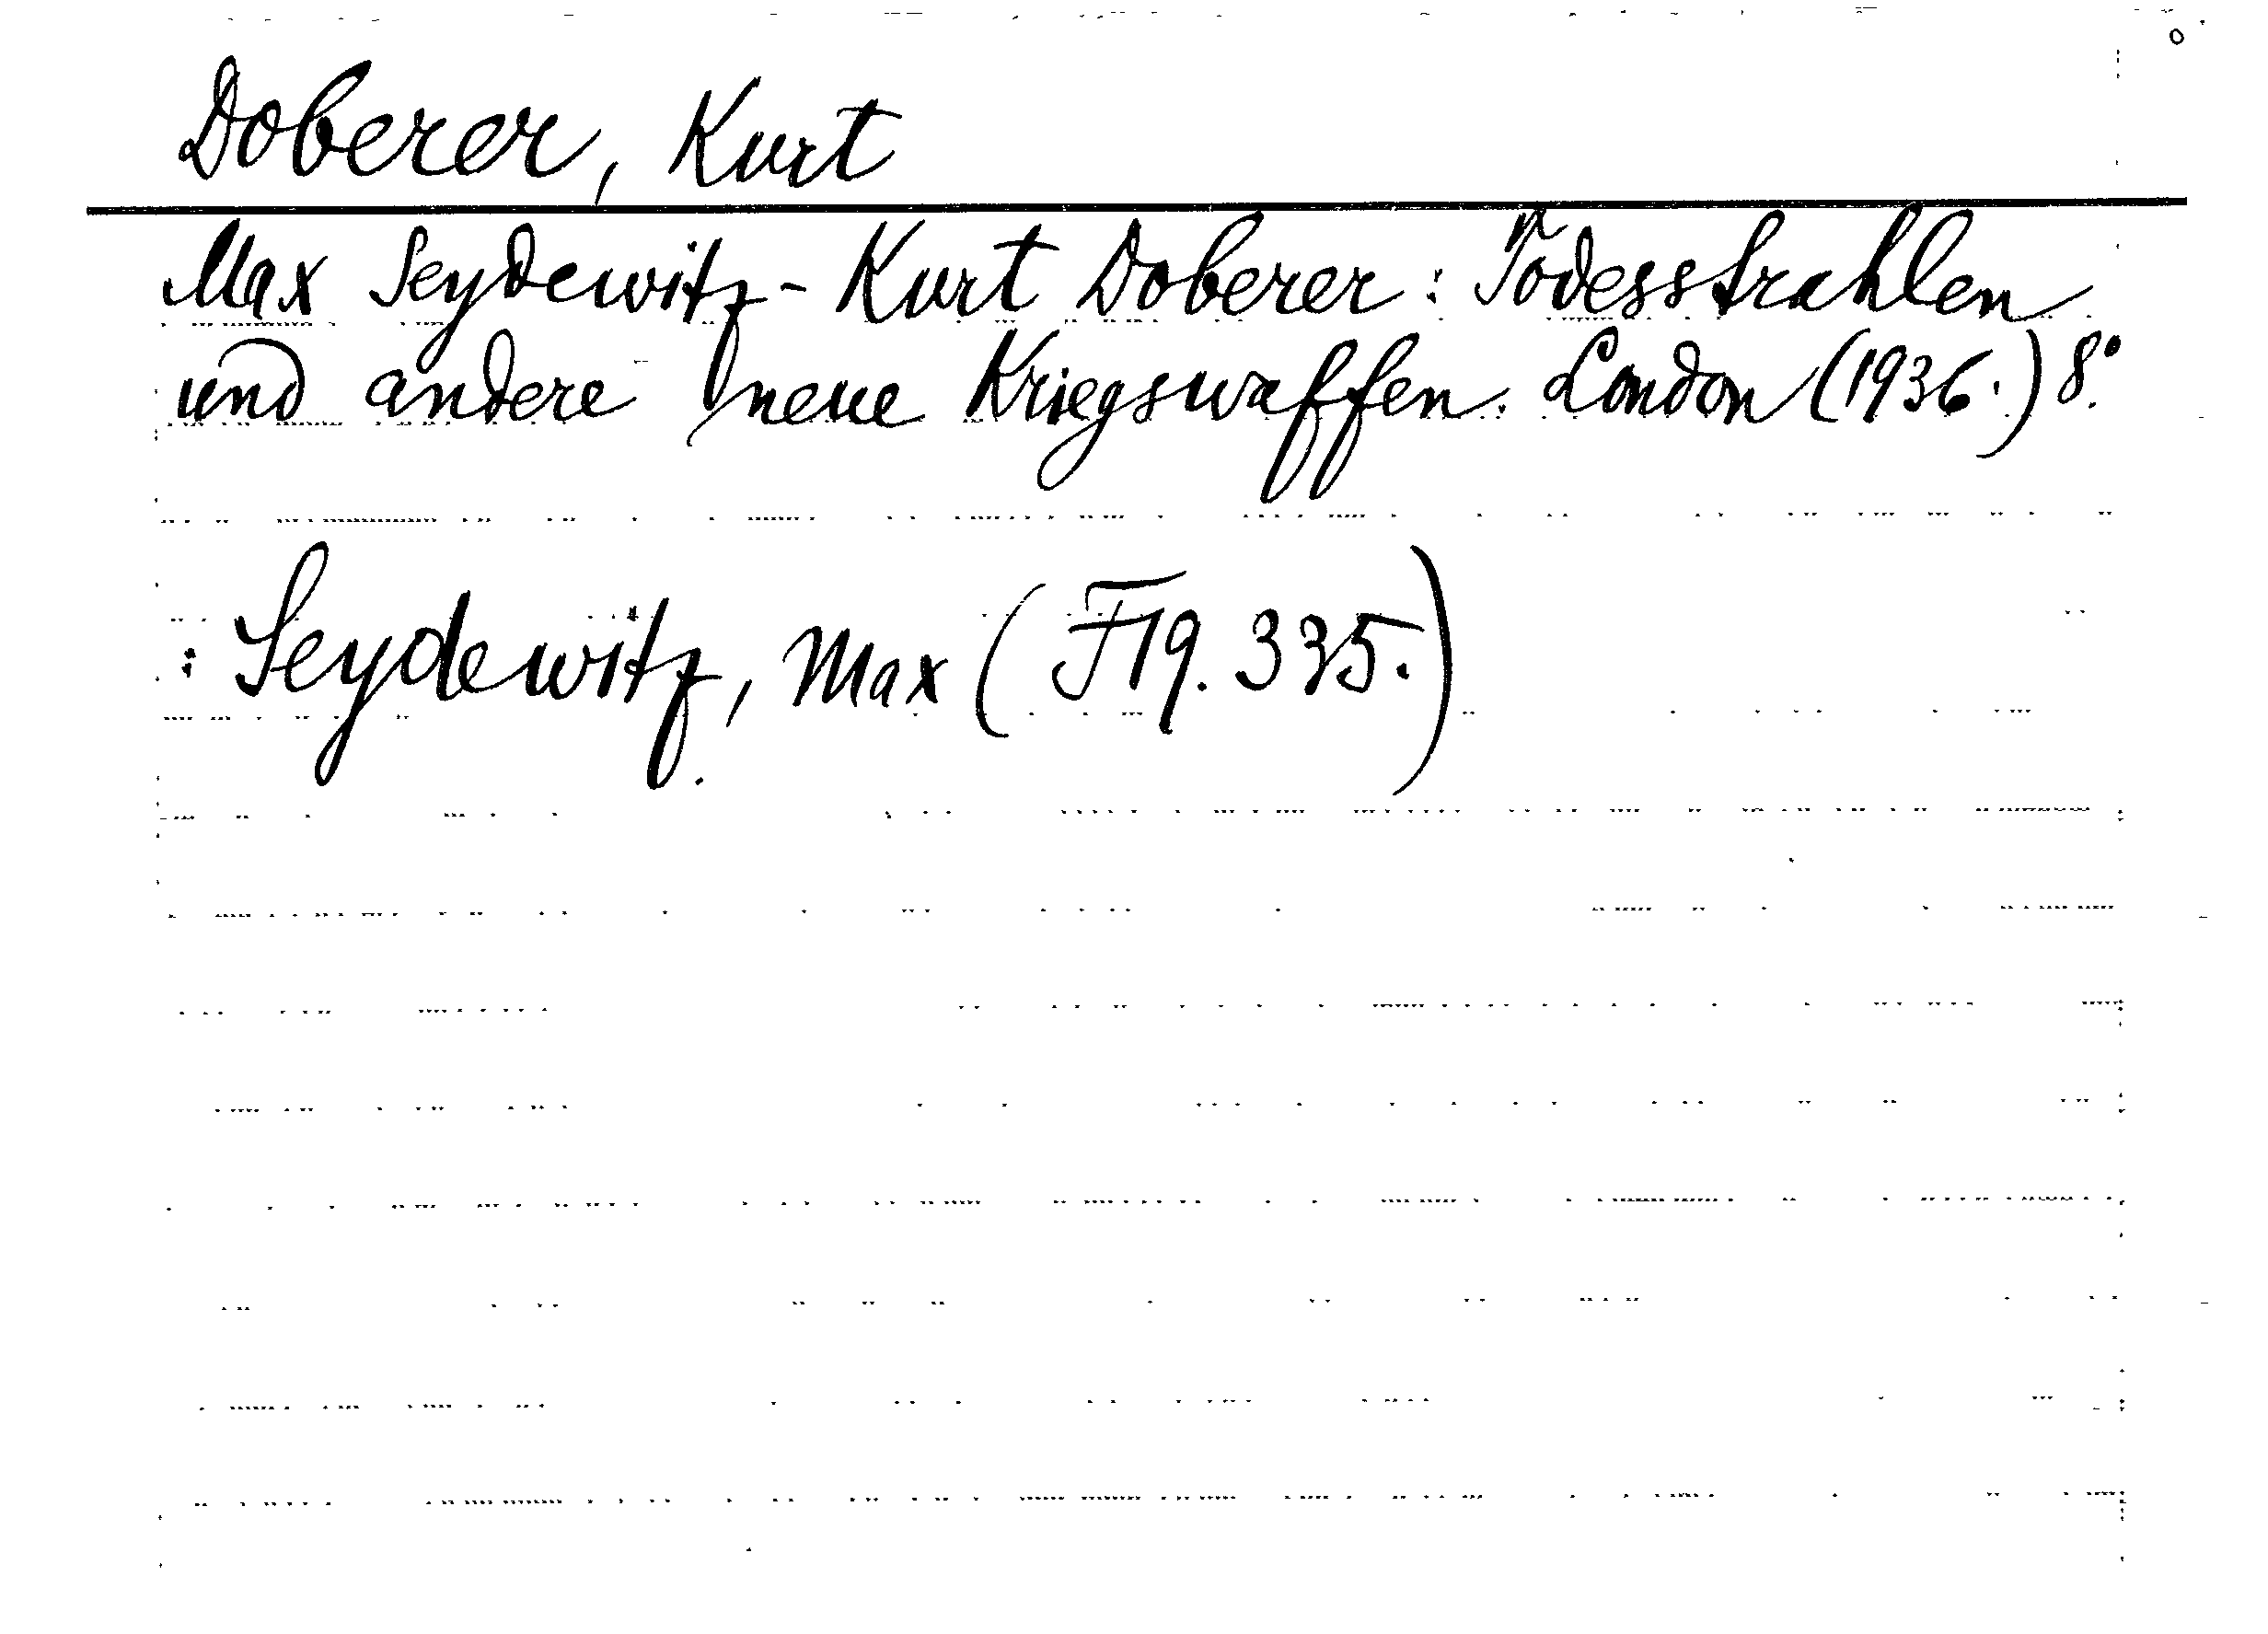 Doberer, Kurt
Max Seydewitz - Kurt Doberer: Todesstrahlen
und andere neue Kriegswaffen. London (1936.) 8°.
: Seydewitz, Max (F19. 335.)